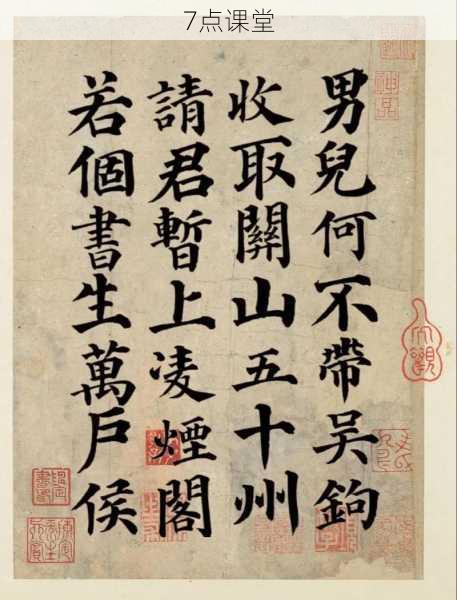 7点课堂
男兒何不帶吴鉤
收取關山五十州
請君暫上凌煙閣
若個書生萬户侯